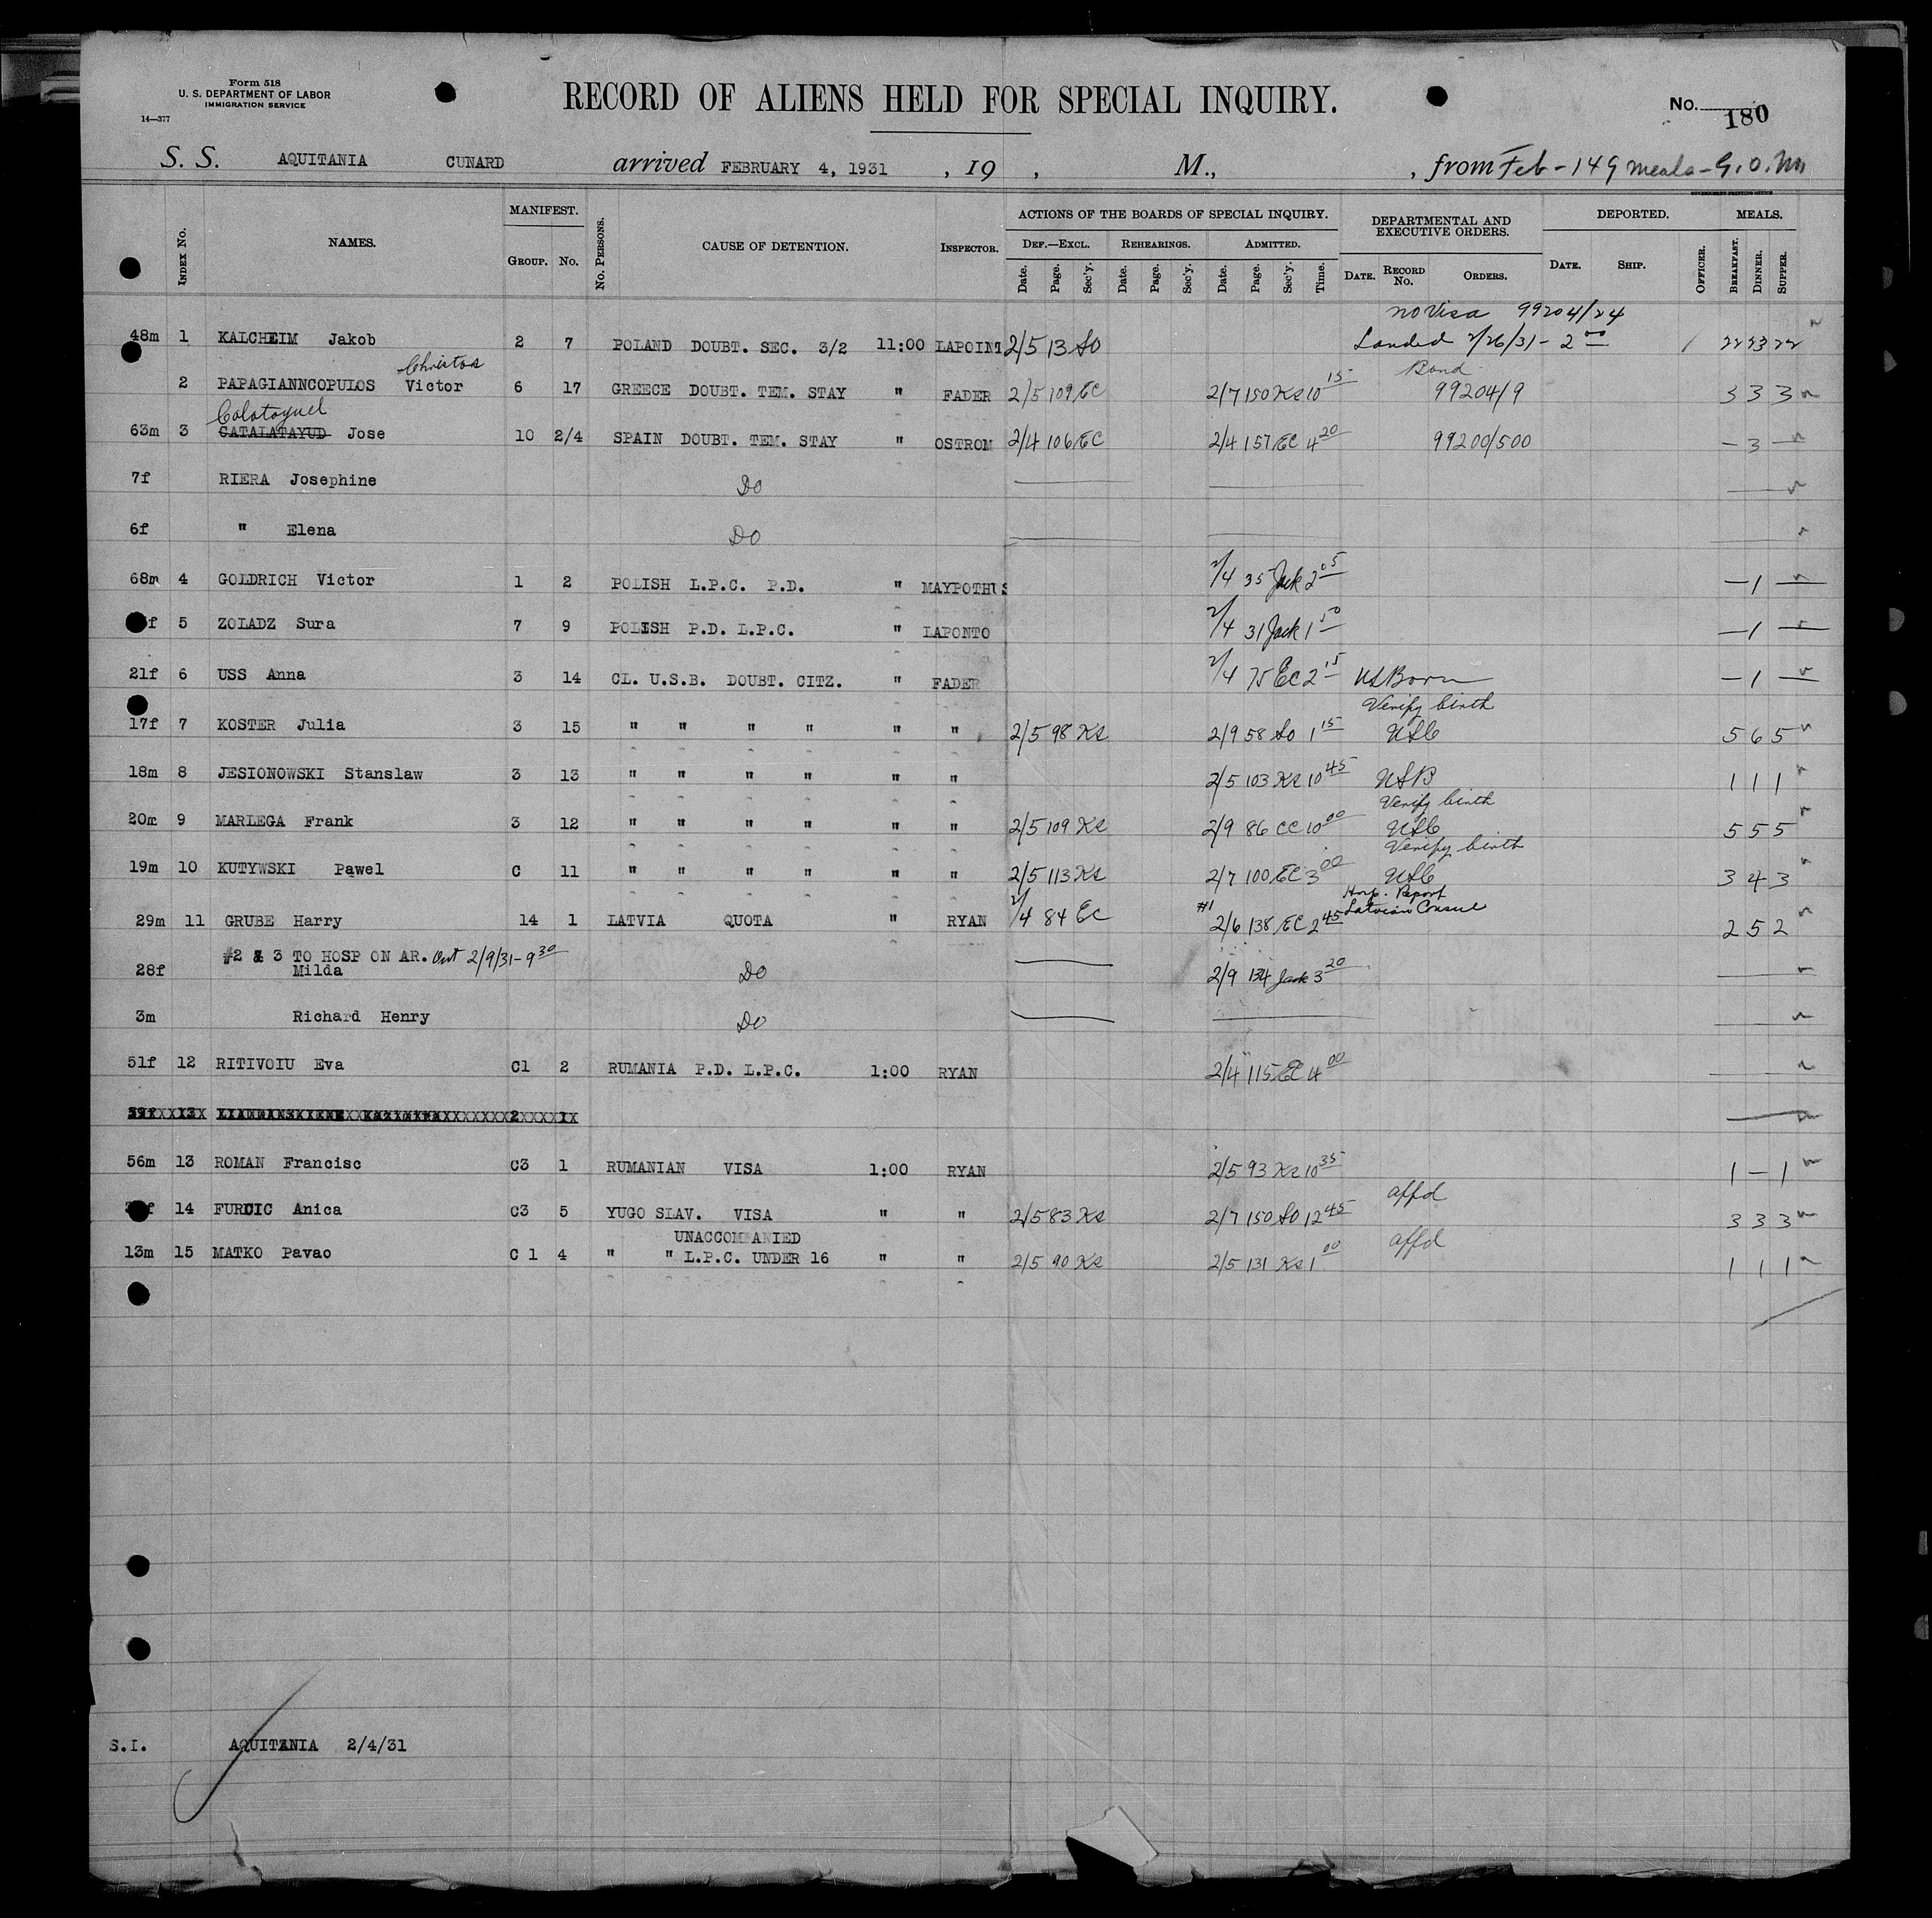 Form 518
U. S. DEPARTMENT OF LABOR
IMMIGRATION SERVICE
14—377
RECORD OF ALIENS HELD FOR SPECIAL INQUIRY.
No. 180
S. S. AQUITANIA CUNARD arrived FEBRUARY 4, 1931 , 19 , M., , from Feb - 149 meals - G.O.M
GOVERNMENT PRINTING OFFICE
INDEX NO. NAMES. MANIFEST. GROUP. NO. NO. PERSONS. CAUSE OF DETENTION. INSPECTOR. ACTIONS OF THE BOARDS OF SPECIAL INQUIRY. DEPARTMENTAL AND EXECUTIVE ORDERS. DEPORTED. MEALS.
DEF.—EXCL. REHEARINGS. ADMITTED.
Date. Page. Sec'y. Date. Page. Sec'y. Date. Page. Sec'y. Time. DATE. RECORD NO. ORDERS. DATE. SHIP. OFFICER. BREAKFAST. DINNER. SUPPER.
no Visa 99204/24
48m 1 KALCHEIM Jakob 2 7 POLAND DOUBT. SEC. 3/2 11:00 LAPOINT 2/5 13 SO Landed 2/26/31 - 2 00 22 23 22
Christos Bond
2 PAPAGIANNCOPULOS Victor 6 17 GREECE DOUBT. TEM. STAY " FADER 2/5 109 EC 2/7 150 Ks 10 15 99204/9 3 3 3
Calatayuel
63m 3 CATALATAYUD Jose 10 2/4 SPAIN DOUBT. TEM. STAY " OSTROM 2/4 106 EC 2/4 157 EC 4 20 99200/500 — 3 —
7f RIERA Josephine Do
6f " Elena Do
68m 4 GOLDRICH Victor 1 2 POLISH L.P.C. P.D. " MAYPOTHUS 2/4 35 Jack 2 05 — 1 —
f 5 ZOLADZ Sura 7 9 POLISH P.D. L.P.C. " LAPONTO 2/4 31 Jack 1 50 — 1 —
21f 6 USS Anna 3 14 CL. U.S.B. DOUBT. CITZ. " FADER 2/4 75 EC 2 15 US Born — 1 —
Verify birth
17f 7 KOSTER Julia 3 15 " " " " " " 2/5 98 Ks 2/9 58 SO 1 15 USC 5 6 5
18m 8 JESIONOWSKI Stanslaw 3 13 " " " " " " 2/5 103 Ks 10 45 USB 1 1 1
Verify birth
20m 9 MARLEGA Frank 3 12 " " " " " " 2/5 109 Ks 2/9 86 CC 10 00 USC 5 5 5
Verify birth
19m 10 KUTYWSKI Pawel C 11 " " " " " " 2/5 113 Ks 2/7 100 EC 3 00 USC 3 4 3
Hosp. Report
29m 11 GRUBE Harry 14 1 LATVIA QUOTA " RYAN 2/4 84 EC #1 2/6 138 EC 2 45 Latvian Consul 2 5 2
#2 & 3 TO HOSP ON AR. Out 2/9/31 - 9 30
28f Milda Do 2/9 134 Jack 3 20
3m Richard Henry Do
51f 12 RITIVOIU Eva Cl 2 RUMANIA P.D. L.P.C. 1:00 RYAN 2/4 115 EC 4 00
56m 13 ROMAN Francisc C3 1 RUMANIAN VISA 1:00 RYAN 2/5 93 Ks 10 35 1 — 1
affd
f 14 FURCIC Anica C3 5 YUGO SLAV. VISA " " 2/5 83 Ks 2/7 150 SO 12 45 3 3 3
UNACCOMPANIED affd
13m 15 MATKO Pavao C 1 4 " " L.P.C. UNDER 16 " " 2/5 90 Ks 2/5 131 Ks 1 00 1 1 1
S.I. AQUITANIA 2/4/31